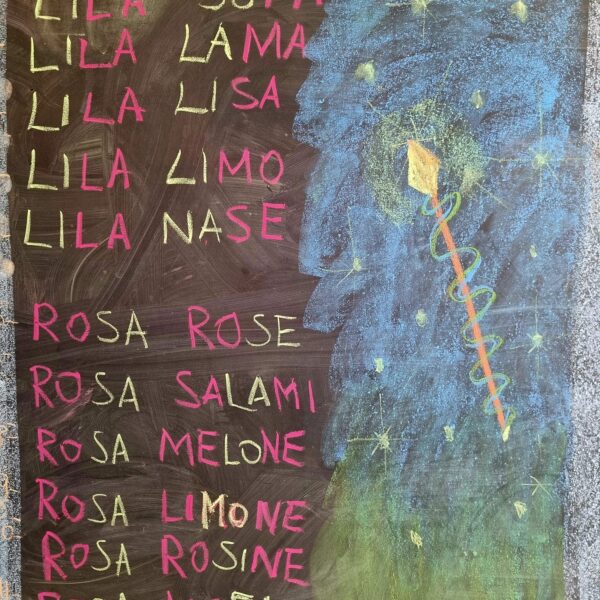 LILA SOFA
LILA LAMA
LILA LISA
LILA LIMO
LILA NASE
ROSA ROSE
ROSA SALAMI
ROSA MELONE
ROSA LIMONE
ROSA ROSINE
ROSA